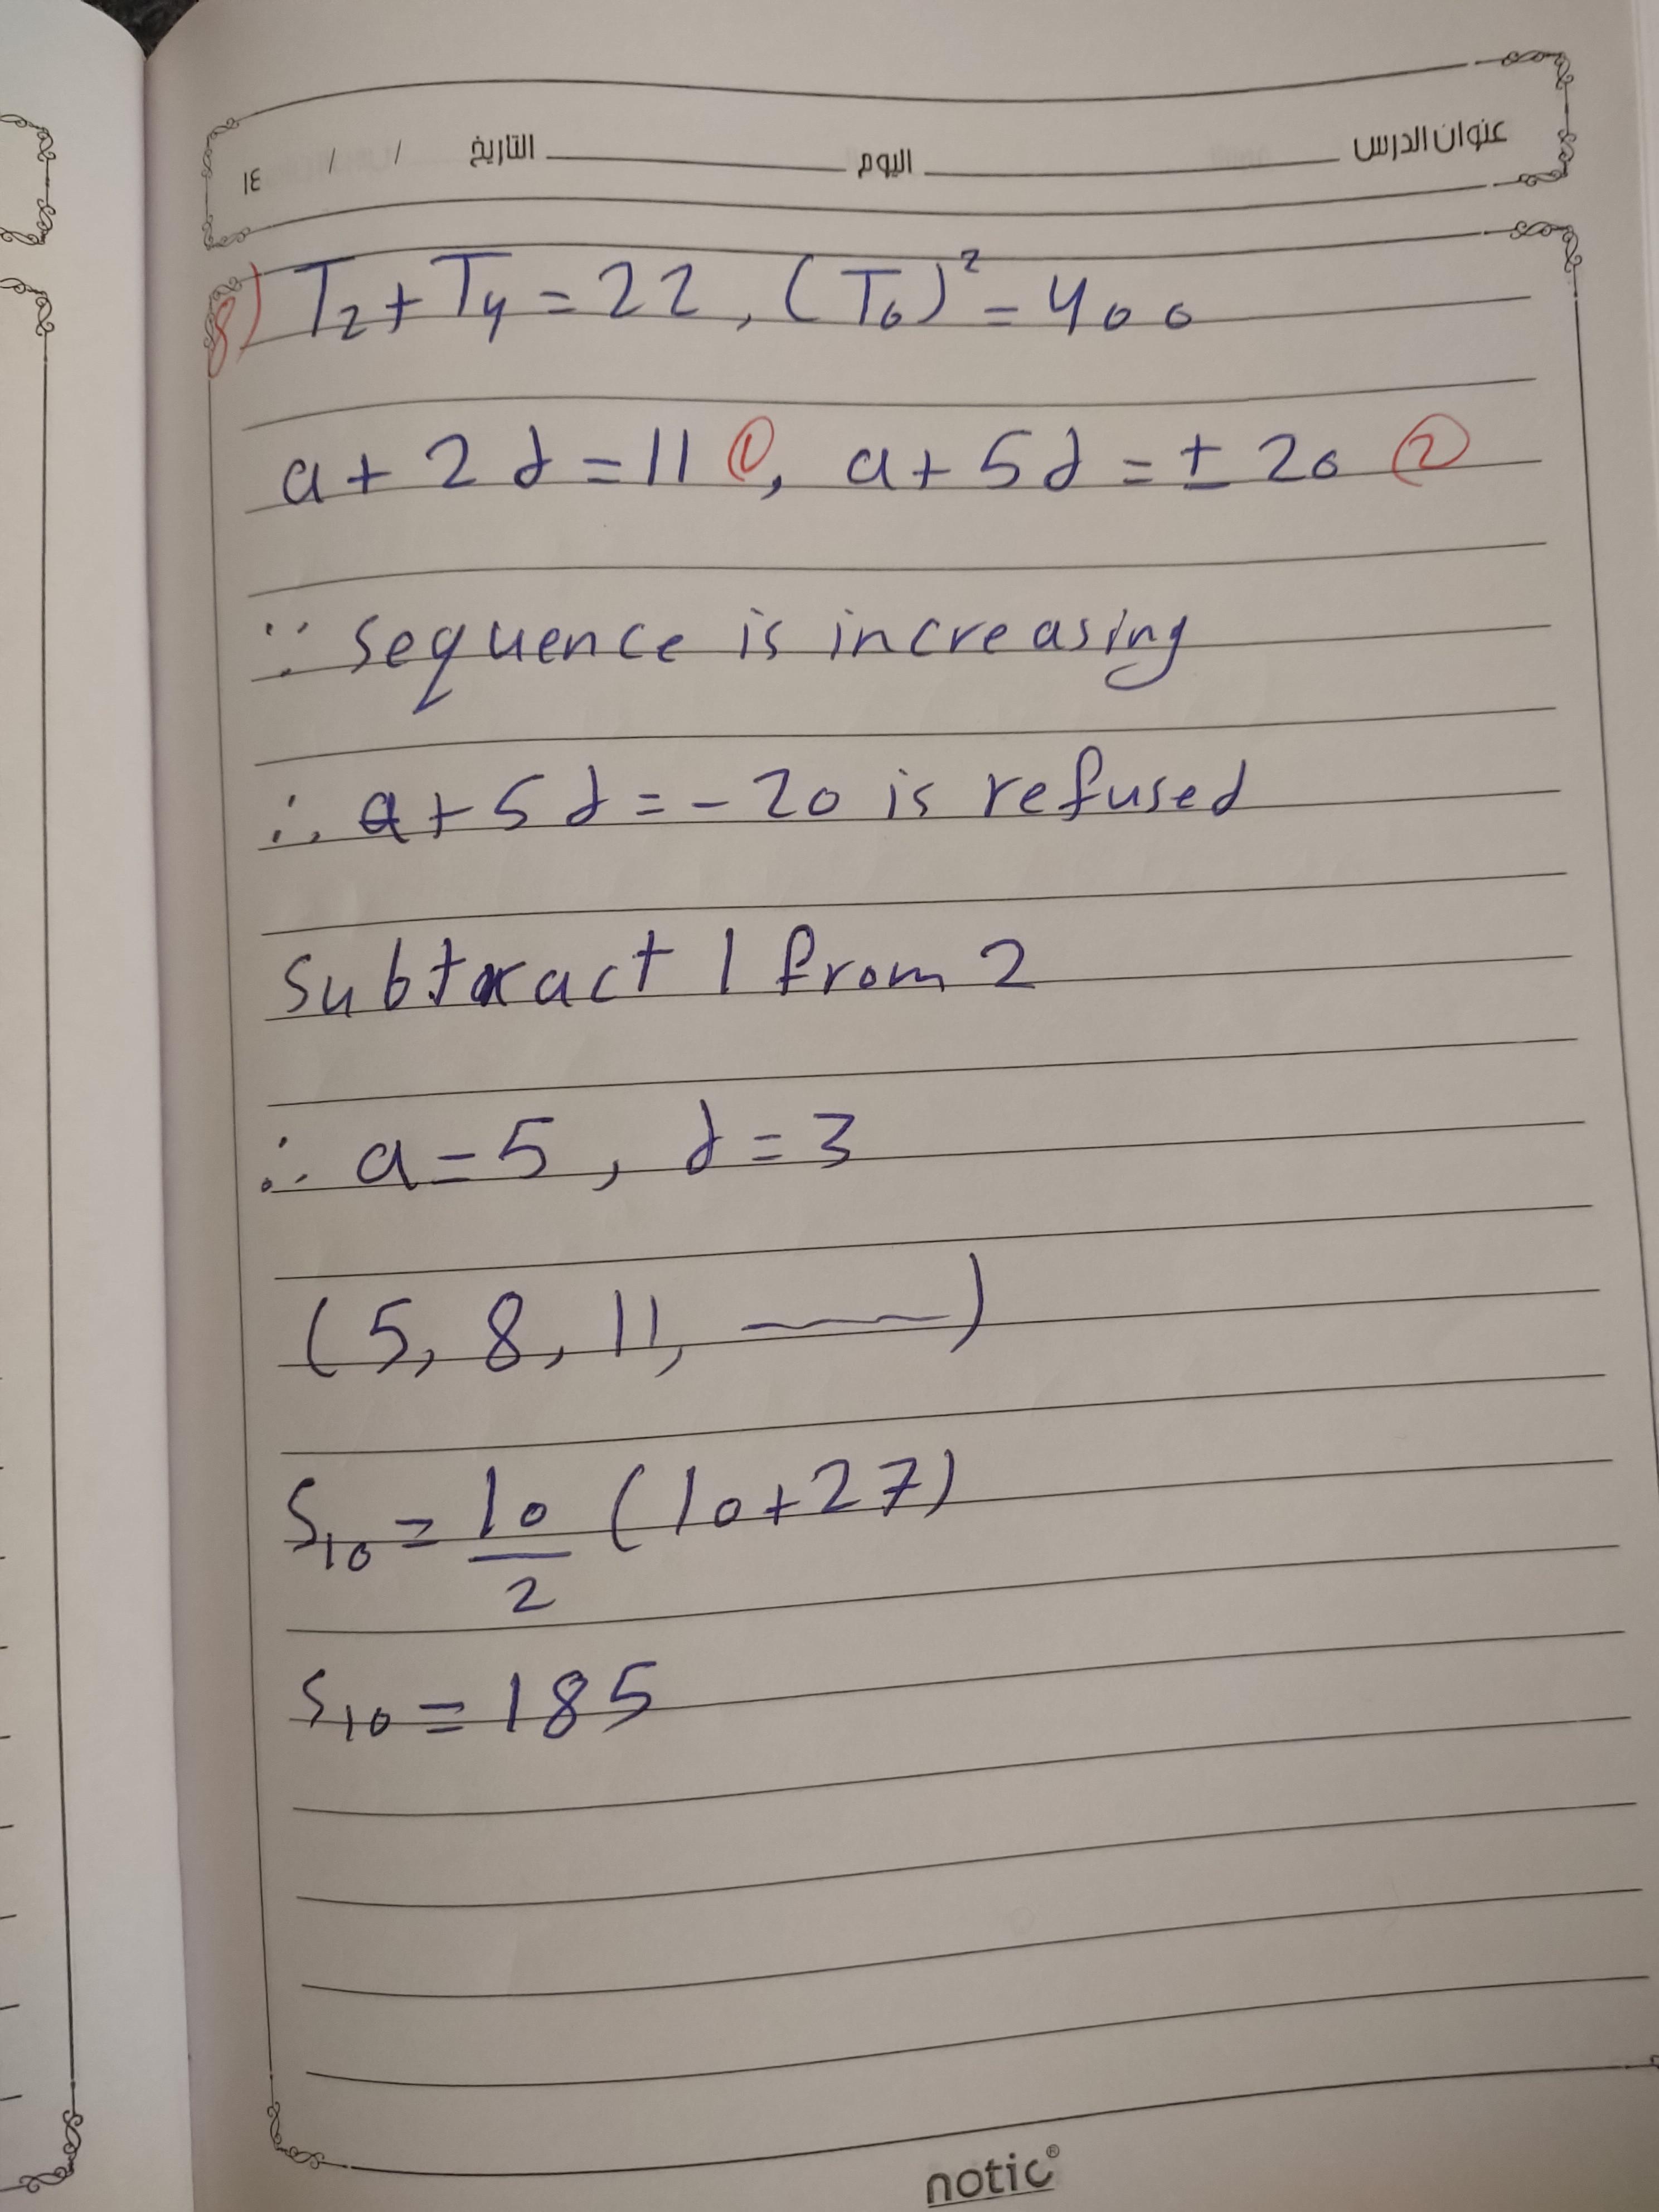 عنوان الدرس ________ اليوم ________ التاريخ / / ١٤
8) T₂ + T₄ = 22, (T₆)² = 400
a + 2d = 11 ①, a + 5d = ± 20 ②
∵ sequence is increasing
∴ a + 5d = - 20 is refused
Subtract 1 from 2
∴ a = 5, d = 3
(5, 8, 11, ——)
S₁₀ = 10/2 (10 + 27)
S₁₀ = 185
notic®